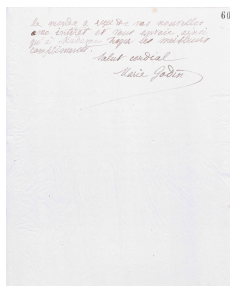 60
a                     vos nouvelles
avec intérêt et vous envoie ainsi
qu'à Madame        les meilleurs
compliments.
Salut cordial
Marie Godin